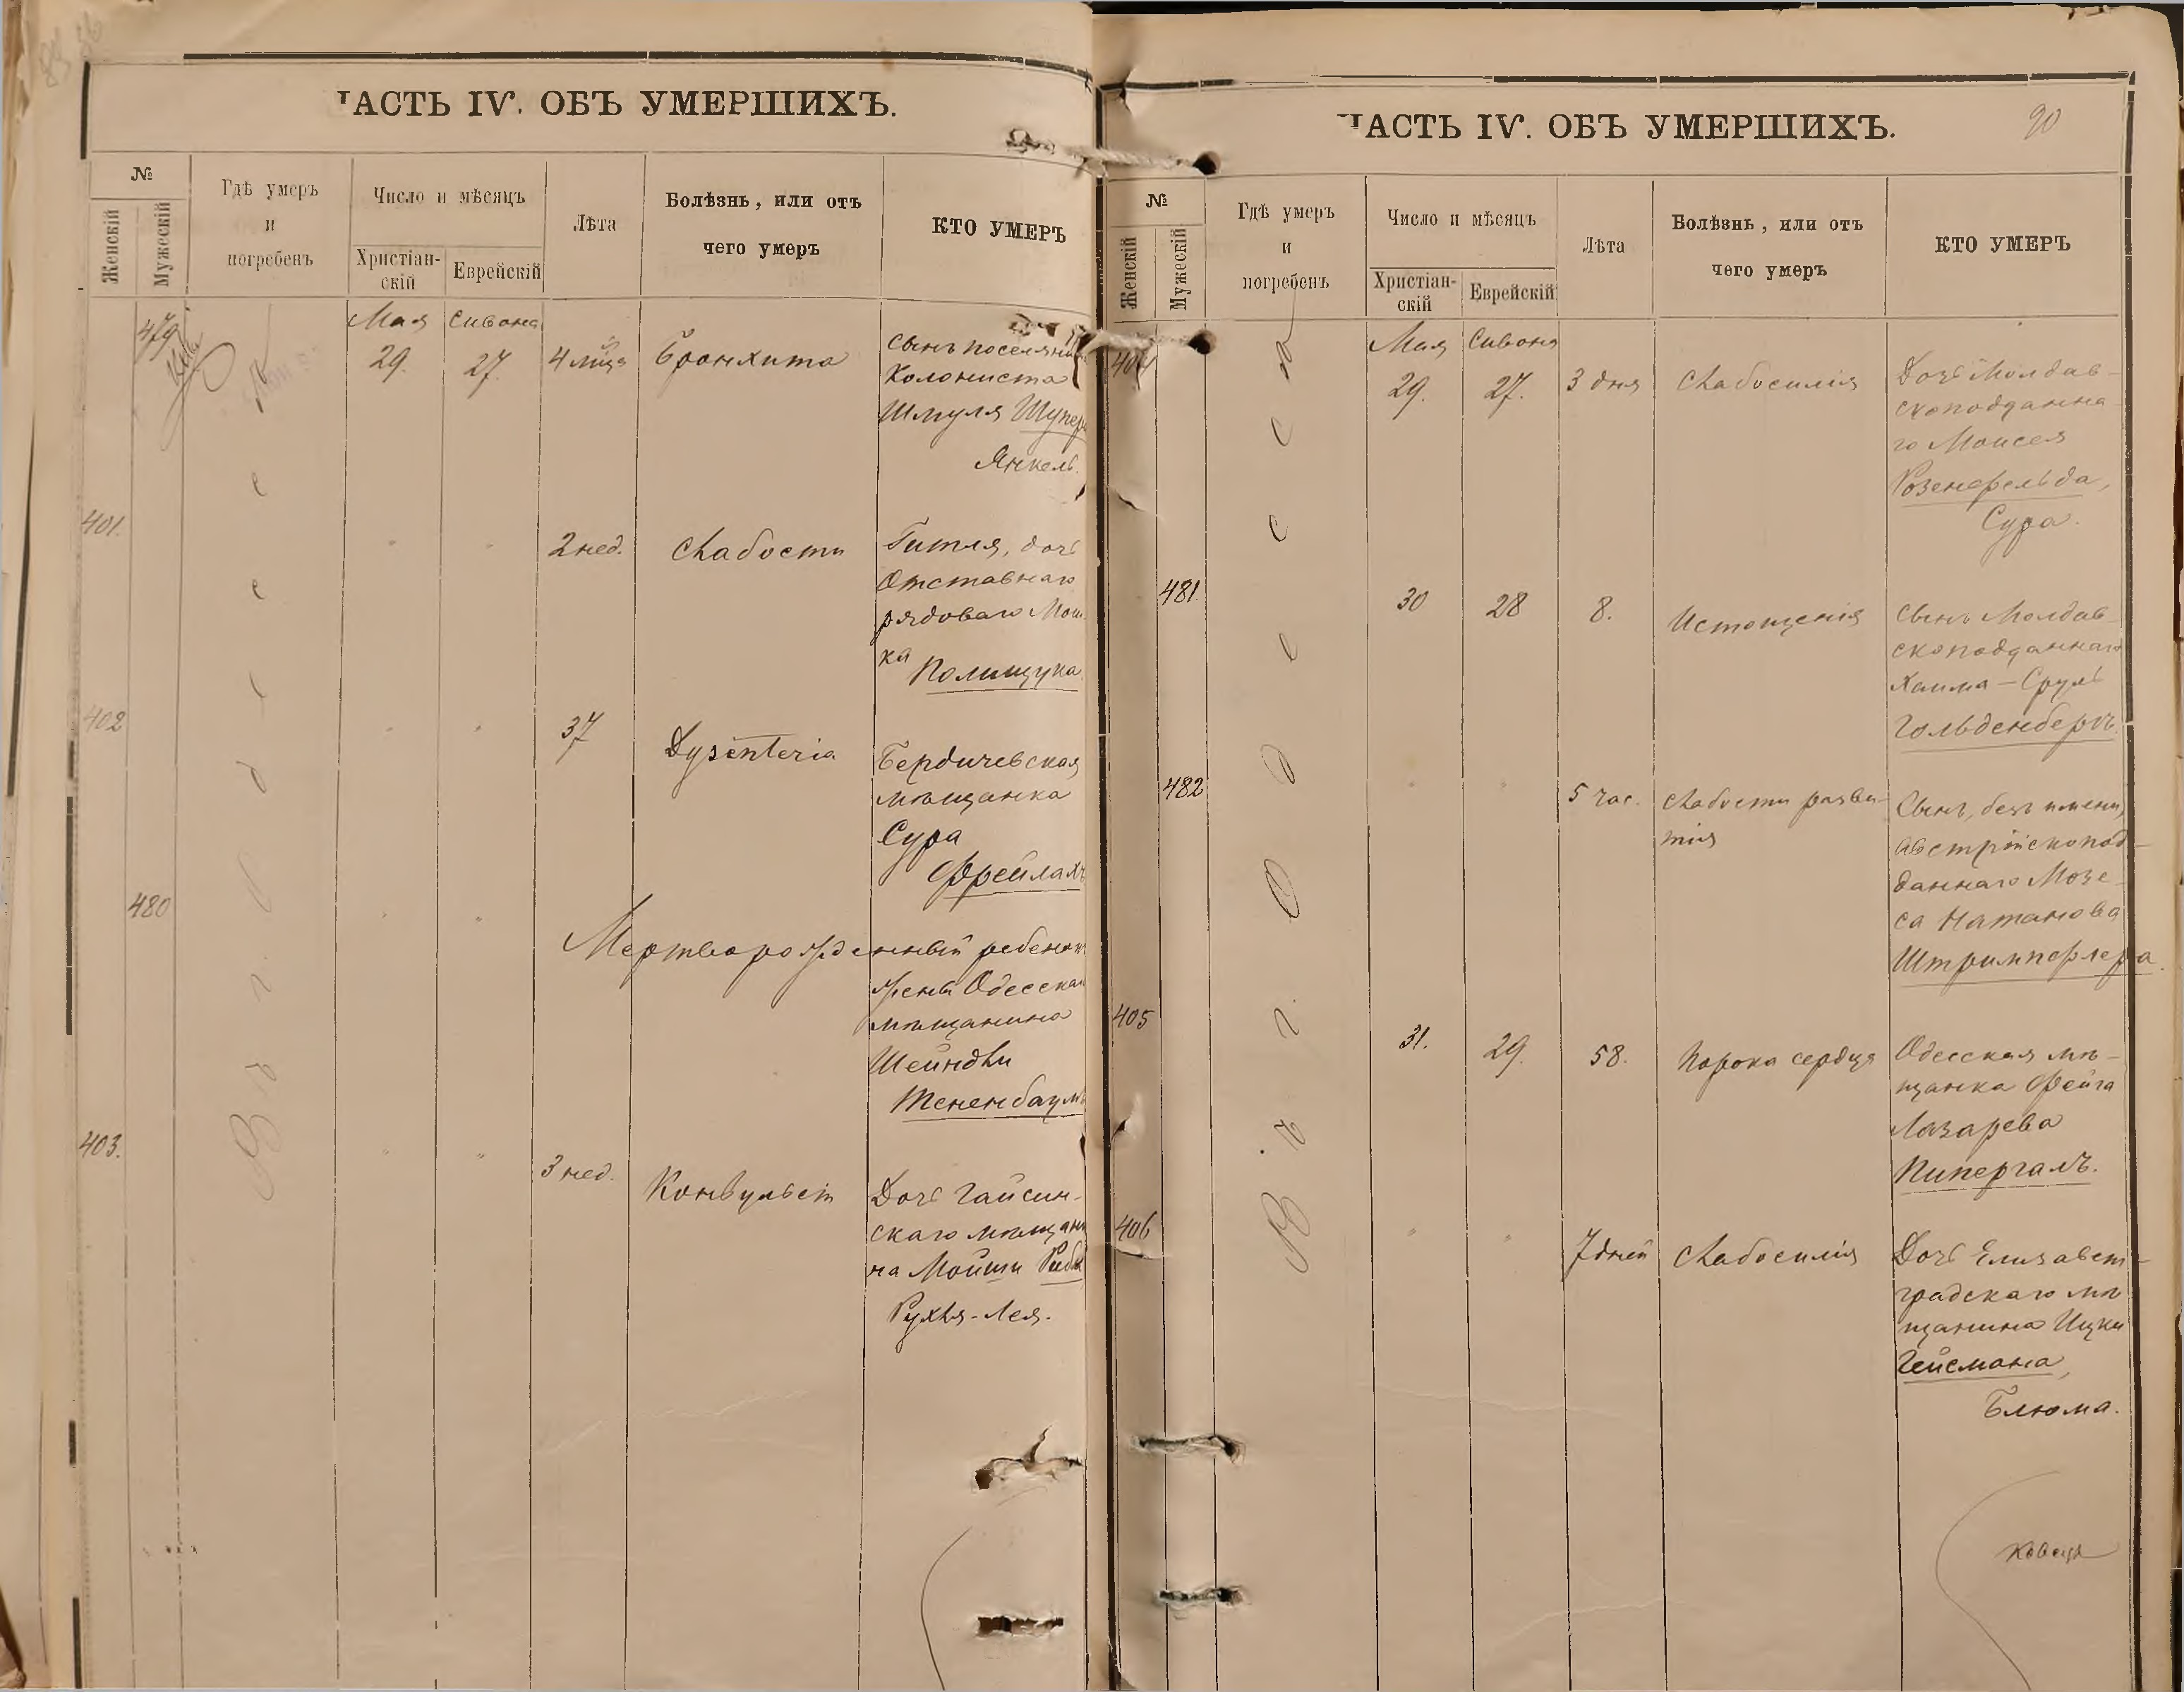 ЧАСТЬ IV. ОБЪ УМЕРШИХЪ.
№
Женскій
Мужескій
Гдѣ умеръ
и
погребенъ
Число и мѣсяцъ
Христіан-
скій
Еврейскій
Лѣта
Болѣзнь, или отъ
чего умеръ
КТО УМЕРЪ
Въ г. Одессѣ
Мая Сивона
479 29. 27. 4 мѣца Бронхита
Сынъ поселянина
Колониста
Шмуля Шупер
Янкель.
401. " " 2 нед. Слабости
Гитля, дочь
Отставнаго
рядоваго Мош-
ка Полищука
402 " " 37 Dysenteria
Бердичевская
мѣщанка
Сура
Фрейлахъ
480 " "
Мертворожденный ребенокъ
жены Одесскаго
мѣщанина
Шейндли
Тененбаумъ
403. " " 3 нед. Конвульсіи
Дочь Гайсин-
скаго мѣщани
на Мойши
Рухля-Лея.
ЧАСТЬ IV. ОБЪ УМЕРШИХЪ.
90
№
Женскій
Мужескій
Гдѣ умеръ
и
погребенъ
Число и мѣсяцъ
Христіан-
скій
Еврейскій
Лѣта
Болѣзнь, или отъ
чего умеръ
КТО УМЕРЪ
Въ г. Одесса
Мая Сивона
404 29. 27. 3 дня Слабосилія
Дочь Молдав-
скоподданна-
го Моисея
Розенфельда,
Сура.
481 30 28 8. Истощенія
Сынъ Молдав-
скоподданнаго
Хаима-Сруль
Гольденбергъ.
482 " " 5 час. Слабости разви-
тія
Сынъ, безъ имени,
австрійскопод-
даннаго Мозе-
са Натанова
Штримпфлера.
405 31. 29. 58. Порока сердца
Одесская мѣ-
щанка Фейга
Лазарева
Пипергалъ.
406 " " 7 дней Слабосилія
Дочь Елизавет-
градскаго мѣ-
щанина Ицки
Гейсмана,
Блюма.